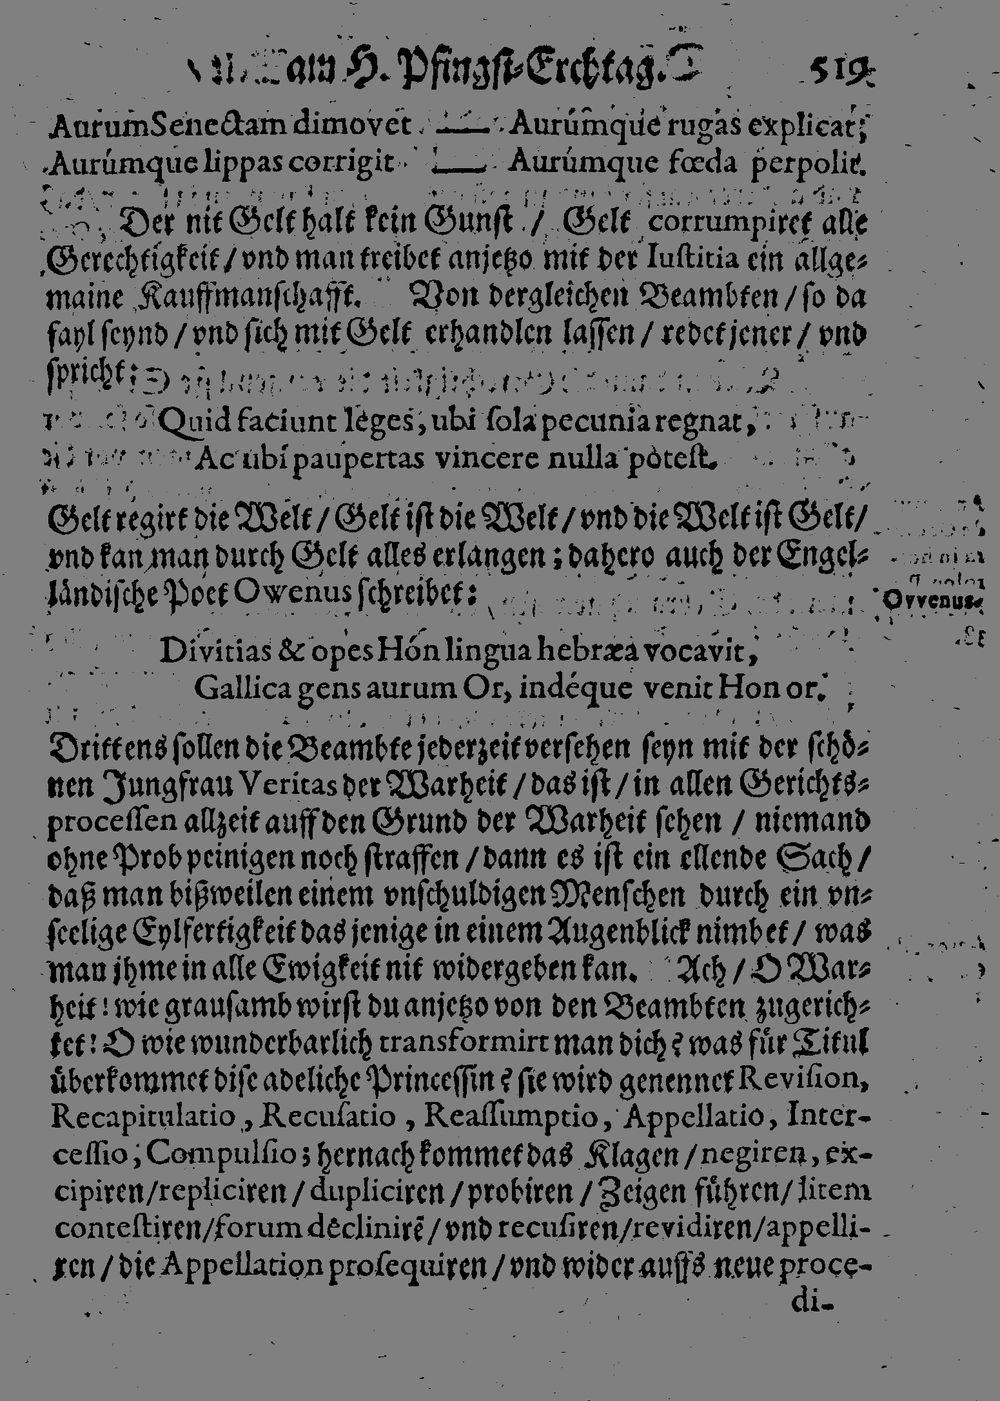 am H. Pfingst-Erchtag. 519
Aurum Senectam dimovet —— Aurúmque rugas explicat;
Aurúmque lippas corrigit —— Aurúmque fœda perpolit.
Der nit Gelt halt kein Gunst / Gelt corrumpiret alle
Gerechtigkeit / vnd man treibet anjetzo mit der Iustitia ein allge-
maine Kauffmanschafft. Von dergleichen Beambten / so da
fayl seynd / vnd sich mit Gelt erhandlen lassen / redet jener / vnd
spricht:
Quid faciunt leges, ubi sola pecunia regnat,
Ac ubi paupertas vincere nulla potest.
Gelt regirt die Welt / Gelt ist die Welt / vnd die Welt ist Gelt /
vnd kan man durch Gelt alles erlangen; dahero auch der Engel-
ländische Poet Owenus schreibet:
Ovvenus.
Divitias & opes Hón lingua hebræa vocavit,
Gallica gens aurum Or, indéque venit Honor.
Drittens sollen die Beambte jederzeit versehen seyn mit der schö-
nen Jungfrau Veritas der Warheit / das ist / in allen Gerichts-
processen allzeit auff den Grund der Warheit sehen / niemand
ohne Prob peinigen noch straffen / dann es ist ein ellende Sach /
daß man bißweilen einem vnschuldigen Menschen durch ein vn-
seelige Eylfertigkeit das jenige in einem Augenblick nimbet / was
man jhme in alle Ewigkeit nit widergeben kan. Ach / O War-
heit! wie grausamb wirst du anjetzo von den Beambten zugerich-
tet! O wie wunderbarlich transformirt man dich? was für Titul
überkommet dise adeliche Princessin? sie wird genennet Revision,
Recapitulatio, Recusatio, Reassumptio, Appellatio, Inter-
cessio, Compulsio; hernach kommet das Klagen / negiren, ex-
cipiren / repliciren / dupliciren / probiren / Zeigen führen / litem
contestiren / forum declinirẽ / vnd recusiren / revidiren / appelli-
ren / die Appellation prosequiren / vnd wider auffs neue proce-
di-